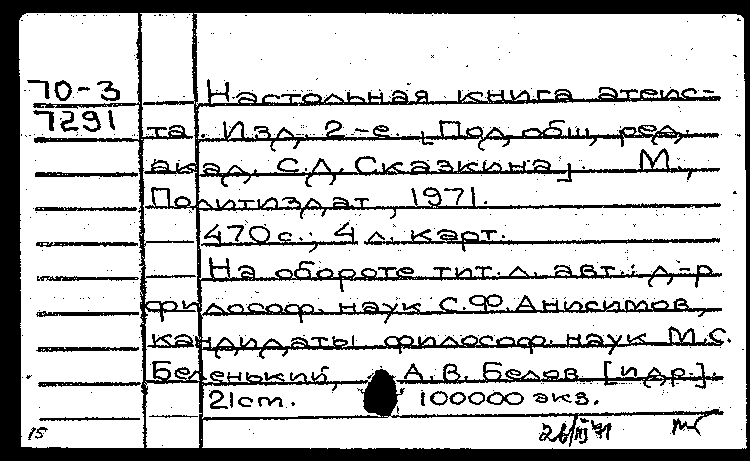 70-3 Настольная книга атеис-
7291 та. Изд. 2-е. [Под общ. ред.
акад. С.Д. Сказкина]. М.,
Политиздат, 1971.
470 с.; 4 л. карт.
На обороте тит. л. авт.: д-р
философ. наук С.Ф. Анисимов,
кандидаты философ. наук М.С.
Беленький, А.В. Белов [и др.].
21 cm. 100000 экз.
15